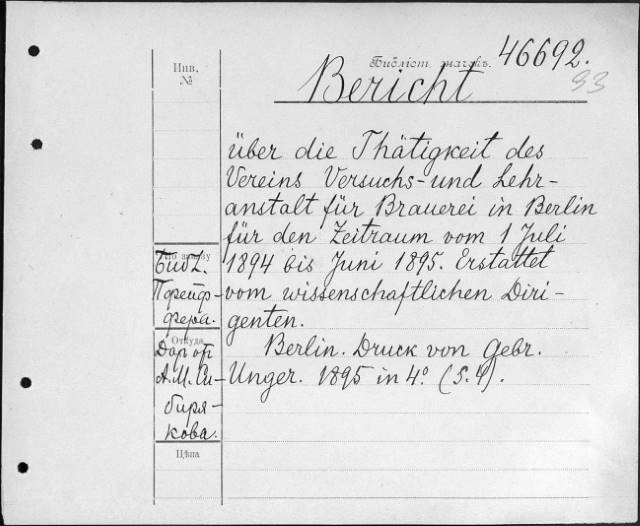 Инв.
№
Библіот. значекъ.
46692.
93
Bericht
über die Thätigkeit des
Vereins Versuchs- und Lehr-
anstalt für Brauerei in Berlin
für den Zeitraum vom 1 Juli
1894 bis Juni 1895. Erstattet
vom wissenschaftlichen Diri-
genten.
Berlin. Druck von Gebr.
Unger. 1895 in 4.° (S.4).
Библ.
Пфейф-
фера.
Откуда
Дар от
А.М. Си-
биря-
кова.
Цѣна